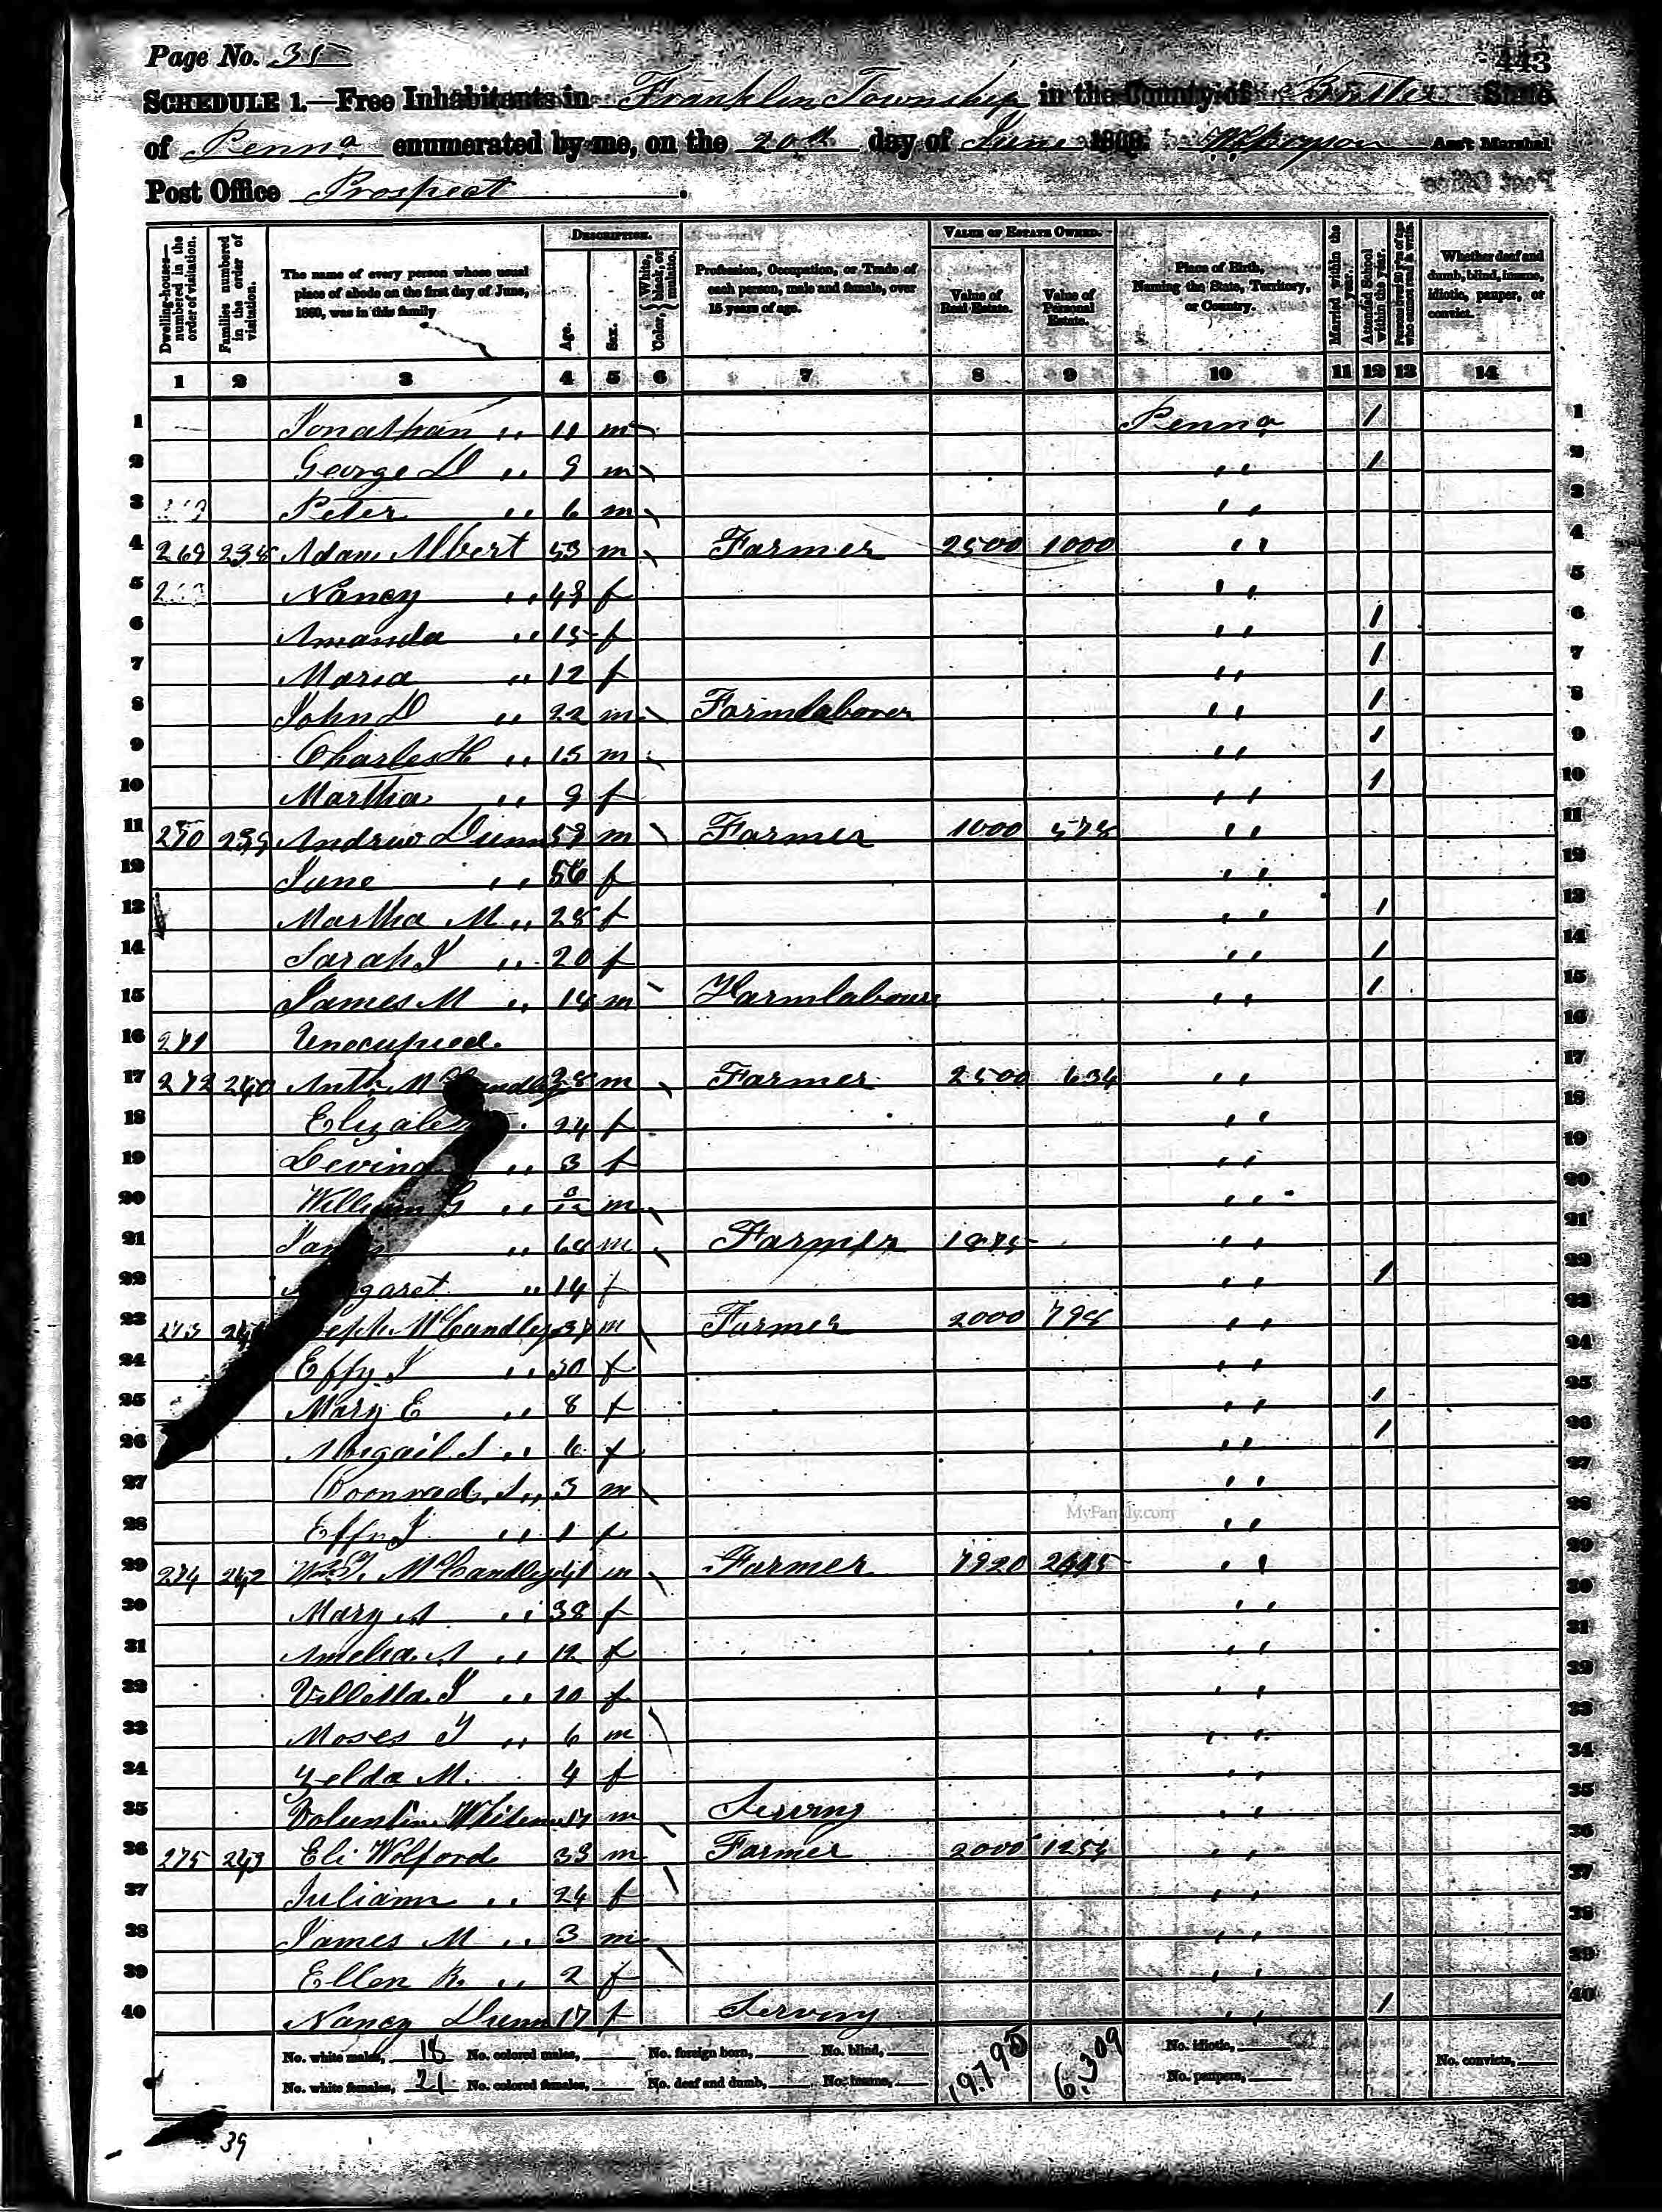 Page No. 35
443
SCHEDULE 1.—Free Inhabitants in Franklin Township in the County of Butler State
of Penna enumerated by me, on the 20th day of June 1860. Ass't Marshal
Post Office Prospect.
Dwelling-houses—numbered in the order of visitation.
Families numbered in the order of visitation.
The name of every person whose usual place of abode on the first day of June, 1860, was in this family
DESCRIPTION.
Age.
Sex.
Color, White, black, or mulatto.
Profession, Occupation, or Trade of each person, male and female, over 15 years of age.
VALUE OF ESTATE OWNED.
Value of Real Estate.
Value of Personal Estate.
Place of Birth, Naming the State, Territory, or Country.
Married within the year.
Attended School within the year.
Persons over 20 y'rs of age who cannot read & write.
Whether deaf and dumb, blind, insane, idiotic, pauper, or convict.
1 2 3 4 5 6 7 8 9 10 11 12 13 14
1 Jonathan " 11 m Penna 1 1
2 George D " 9 m " 1 2
3 Peter " 6 m " 3
4 269 238 Adam Albert 53 m Farmer 2500 1000 " 4
5 Nancy " 49 f " 5
6 Amanda " 15 f " 1 6
7 Maria " 12 f " 1 7
8 John D " 22 m Farmlaborer " 1 8
9 Charles H " 15 m " 1 9
10 Martha " 9 f " 1 10
11 270 239 Andrew Dunn 59 m Farmer 1000 578 " 11
12 Jane " 56 f " 12
13 Martha M " 28 f " 1 13
14 Sarah J " 20 f " 1 14
15 James M " 18 m Farmlabourer " 1 15
16 271 Unocupied. 16
17 272 240 M Candless 38 m Farmer 2500 634 " 17
18 24 f " 18
19 " 3 f " 19
20 William G " m " 20
21 " 68 m Farmer 1875 " 21
22 " 14 f " 1 22
23 273 McCandless 37 m Farmer 2000 798 " 23
24 Effy J " 30 f " 24
25 Mary E " 8 f " 1 25
26 Abigail S " 6 f " 1 26
27 Coonrad S " 3 m " 27
28 Effy J " 1 f " 28
29 274 242 McCandless 41 m Farmer 7920 2445 " 29
30 Mary A " 38 f " 30
31 Amelia A " 12 f " 31
32 " 10 f " 32
33 Moses Y " 6 m " 33
34 Zelda M. 4 f " 34
35 17 m Serving " 35
36 275 243 Eli Wolford 33 m Farmer 2000 1254 " 36
37 Juliann " 24 f " 37
38 James M " 3 m " 38
39 Ellen R. " 2 f " 39
40 Nancy Dunn 17 f Serving " 1 40
No. white males, 18 No. colored males, No. foreign born, No. blind, 19.795 6.309 No. idiotic,
No. white females, 21 No. colored females, No. deaf and dumb, No. insane, No. paupers, No. convicts,
39
MyFamily.com